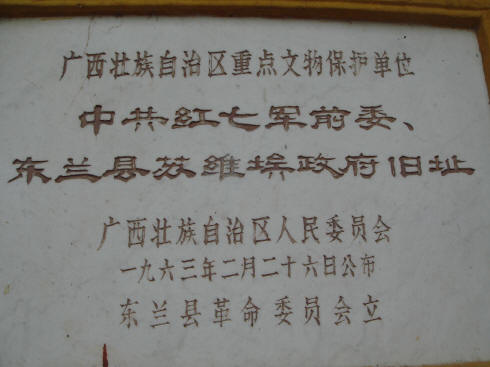 广西壮族自治区重点文物保护单位
中共红七军前委、
东兰县苏维埃政府旧址
广西壮族自治区人民委员会
一九六三年二月二十六日公布
东兰县革命委员会立